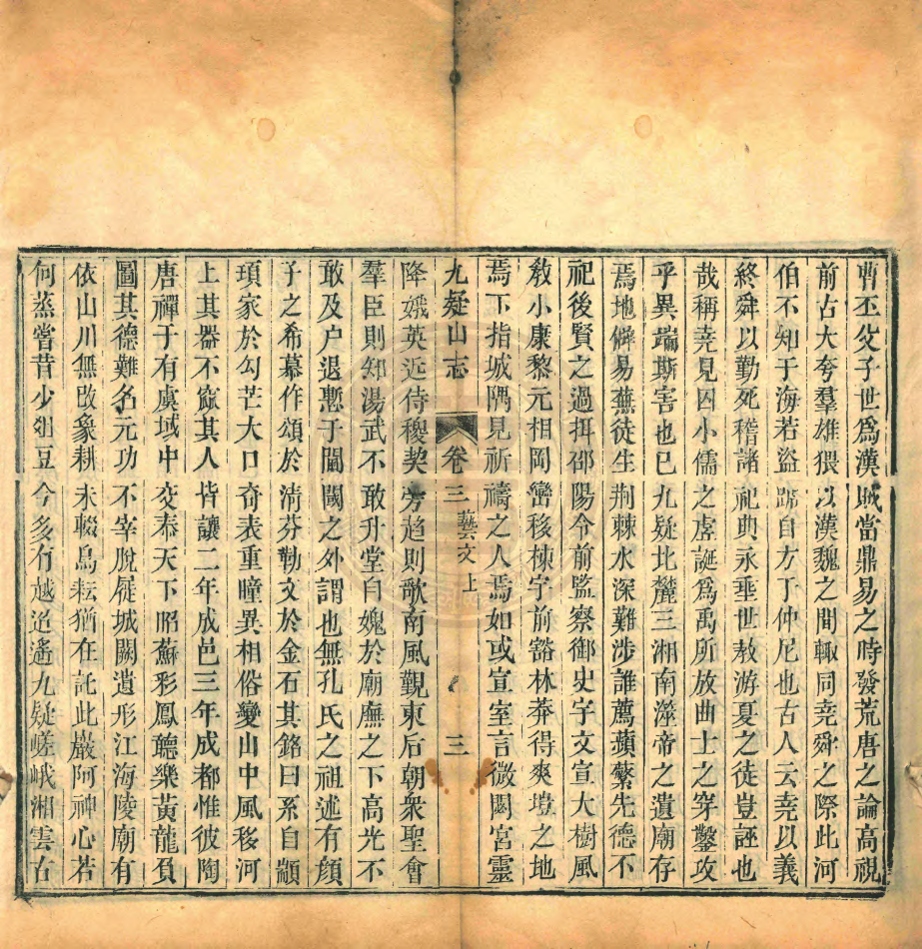 曹丕父子世為漢賊當鼎易之時發荒唐之論高視
前古大夸羣雄猥以漢魏之間輙同堯舜之際此河
伯不知于海若盜蹠自方于仲尼也古人云堯以義
終舜以勤死稽諸祀典永垂世敎游夏之徒豈誣也
哉稱堯見囚小儒之虗誕為禹所放曲士之穿鑿攻
乎異端斯害也已九疑北麓三湘南澨帝之遺廟存
焉地僻易蕪徒生荆棘水深難涉誰薦蘋蘩先德不
祀後賢之過珥邵陽令前監察御史宇文宣大樹風
敎小康黎元相岡巒移棟宇前豁林莽得爽塏之地
焉下指城隅見祈禱之人焉如或宣室言微閟宮靈
九疑山志 卷三 藝文上 三
降娥英近侍稷契旁趨則歌南風覲東后朝衆聖會
羣臣則知湯武不敢升堂自媿於廟廡之下高光不
敢及户退慙于閫閾之外謂也無孔氏之祖述有顔
子之希慕作頌於淸芬勒文於金石其銘曰系自顓
頊家於勾芒大口奇表重瞳異相俗變山中風移河
上其器不窳其人皆讓二年成邑三年成都惟彼陶
唐禪于有虞域中交泰天下昭蘇彩鳳聽樂黃龍負
圖其德難名元功不宰脫屣城闕遺形江海陵廟有
依山川無改象耕未輟鳥耘猶在託此巖阿神心若
何蒸嘗昔少俎豆今多有越迢遙九疑嵯峨湘雲古